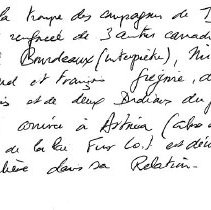 la troupe des compagnons de
renforcée de 3 autres canad
Bourdeaux (interprète), Mi
et François Grégoire, d
is et de deux Indiens du
arrive à Astoria (alors
de la Pac Fur Co.) et déc
lière dans sa Relation.